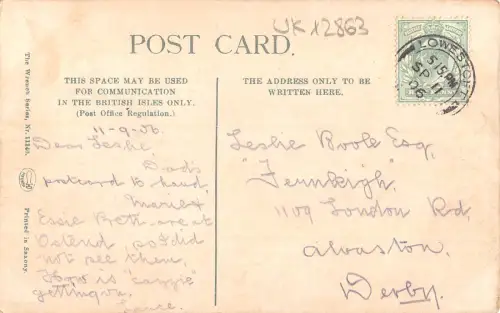 UK12863
POST CARD.
THIS SPACE MAY BE USED
FOR COMMUNICATION
IN THE BRITISH ISLES ONLY.
(Post Office Regulation.)
THE ADDRESS ONLY TO BE
WRITTEN HERE.
LOWESTOFT
5 15 PM
SP 11
06
The Wrench Series, Nr.
Printed in Saxony.
11-9-06.
Dear Leslie
Dad's
postcard to hand,
Essie Beth are at
Ostend, so I did
not see them,
How is "
getting on.
Leslie Boole Esq,
"Fernleigh",
1109 London Rd,
Alvaston,
Derby.